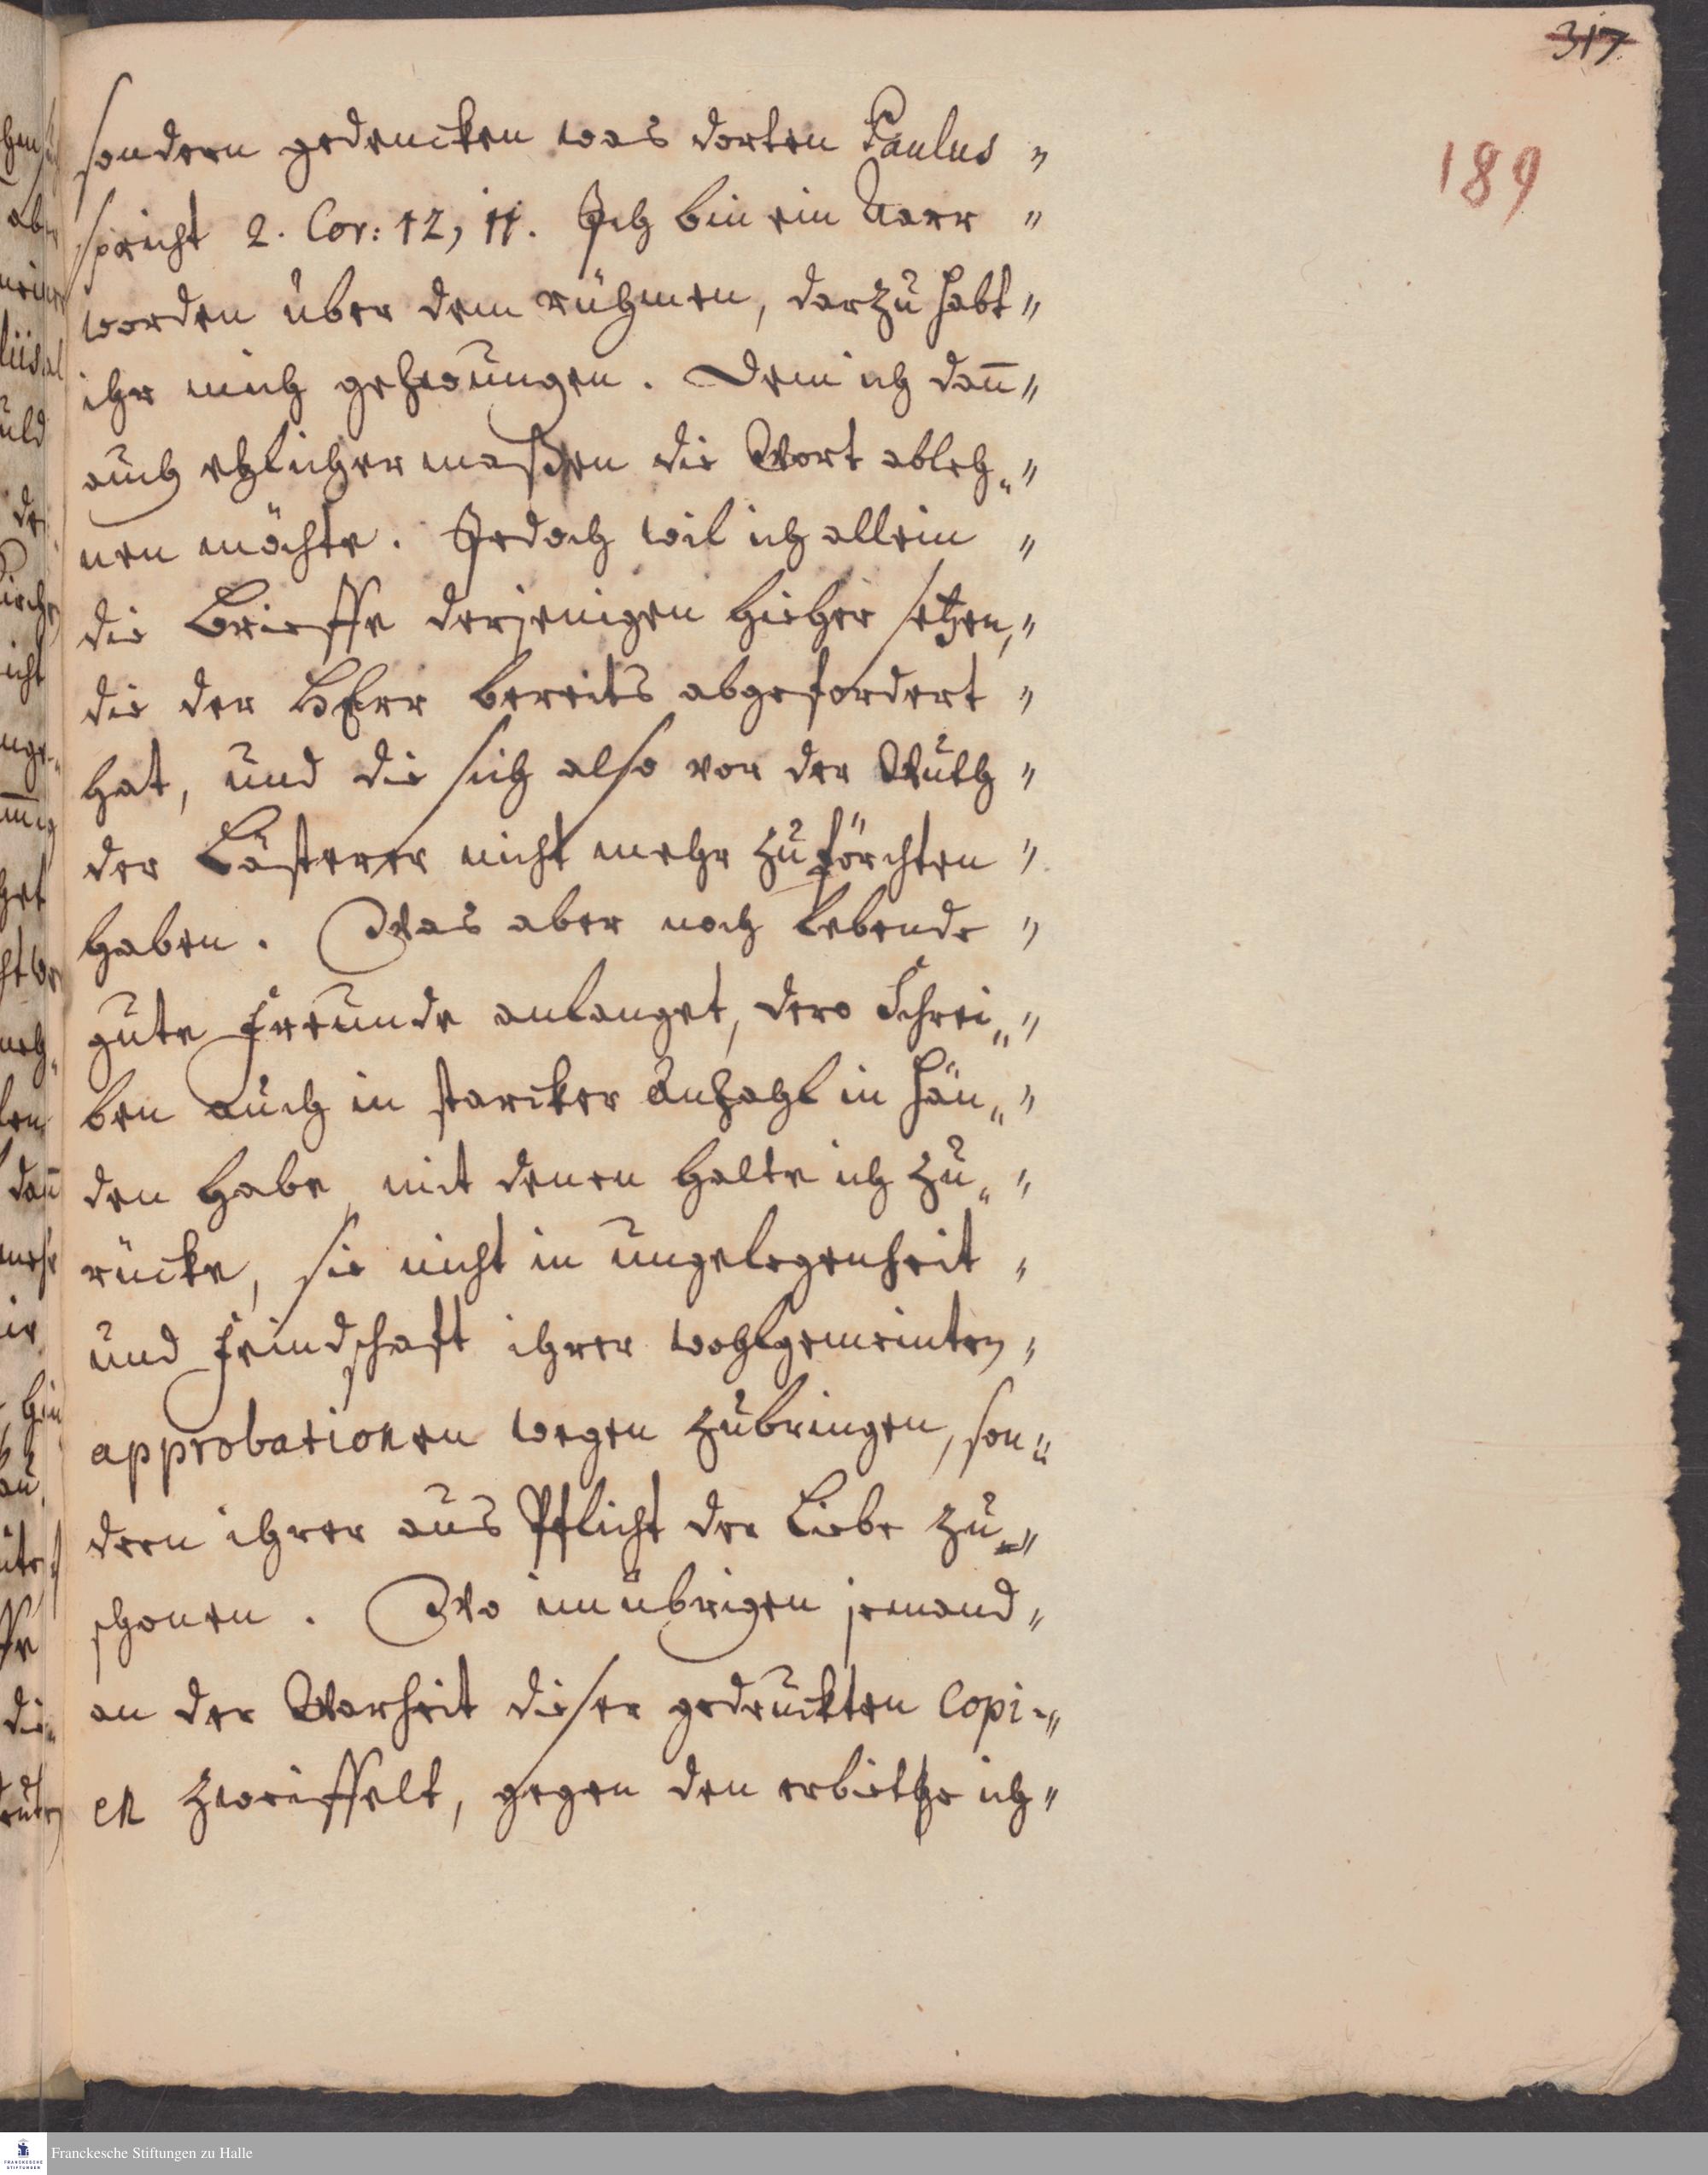 317
189
sondern gedencken was dorten Paulus "
spricht 2. Cor: 12, 11. Ich bin ein Narr "
worden über dem rühmen, darzu habt "
ihr mich gezwungen. Dem ich dan̄ "
auch etzlicher maßen die Wort ableh„ "
nen möchte. Jedoch wil ich allein "
die Brieffe derjenigen hieher setzen, "
die der HErr bereits abgefordert "
hat, und die sich also vor der Wuth "
der Lästerer nicht mehr zu förchten "
haben. Was aber noch lebende "
gute Freunde anlanget, dero Schrei„ "
ben auch in starcker Anzahl in Hän„ "
den habe, mit denen halte ich zu„ "
rücke, sie nicht in ungelegenheit "
und Feindschaft ihrer wohlgemeinten "
approbationen wegen zubringen, son„
dern ihrer aus Pflicht der Liebe zu "
schonen. Wo im übrigen jemand "
an der Warheit dieser gedruckten Copi- "
en zweiffelt, gegen den erbiethe ich "
Franckesche Stiftungen zu Halle